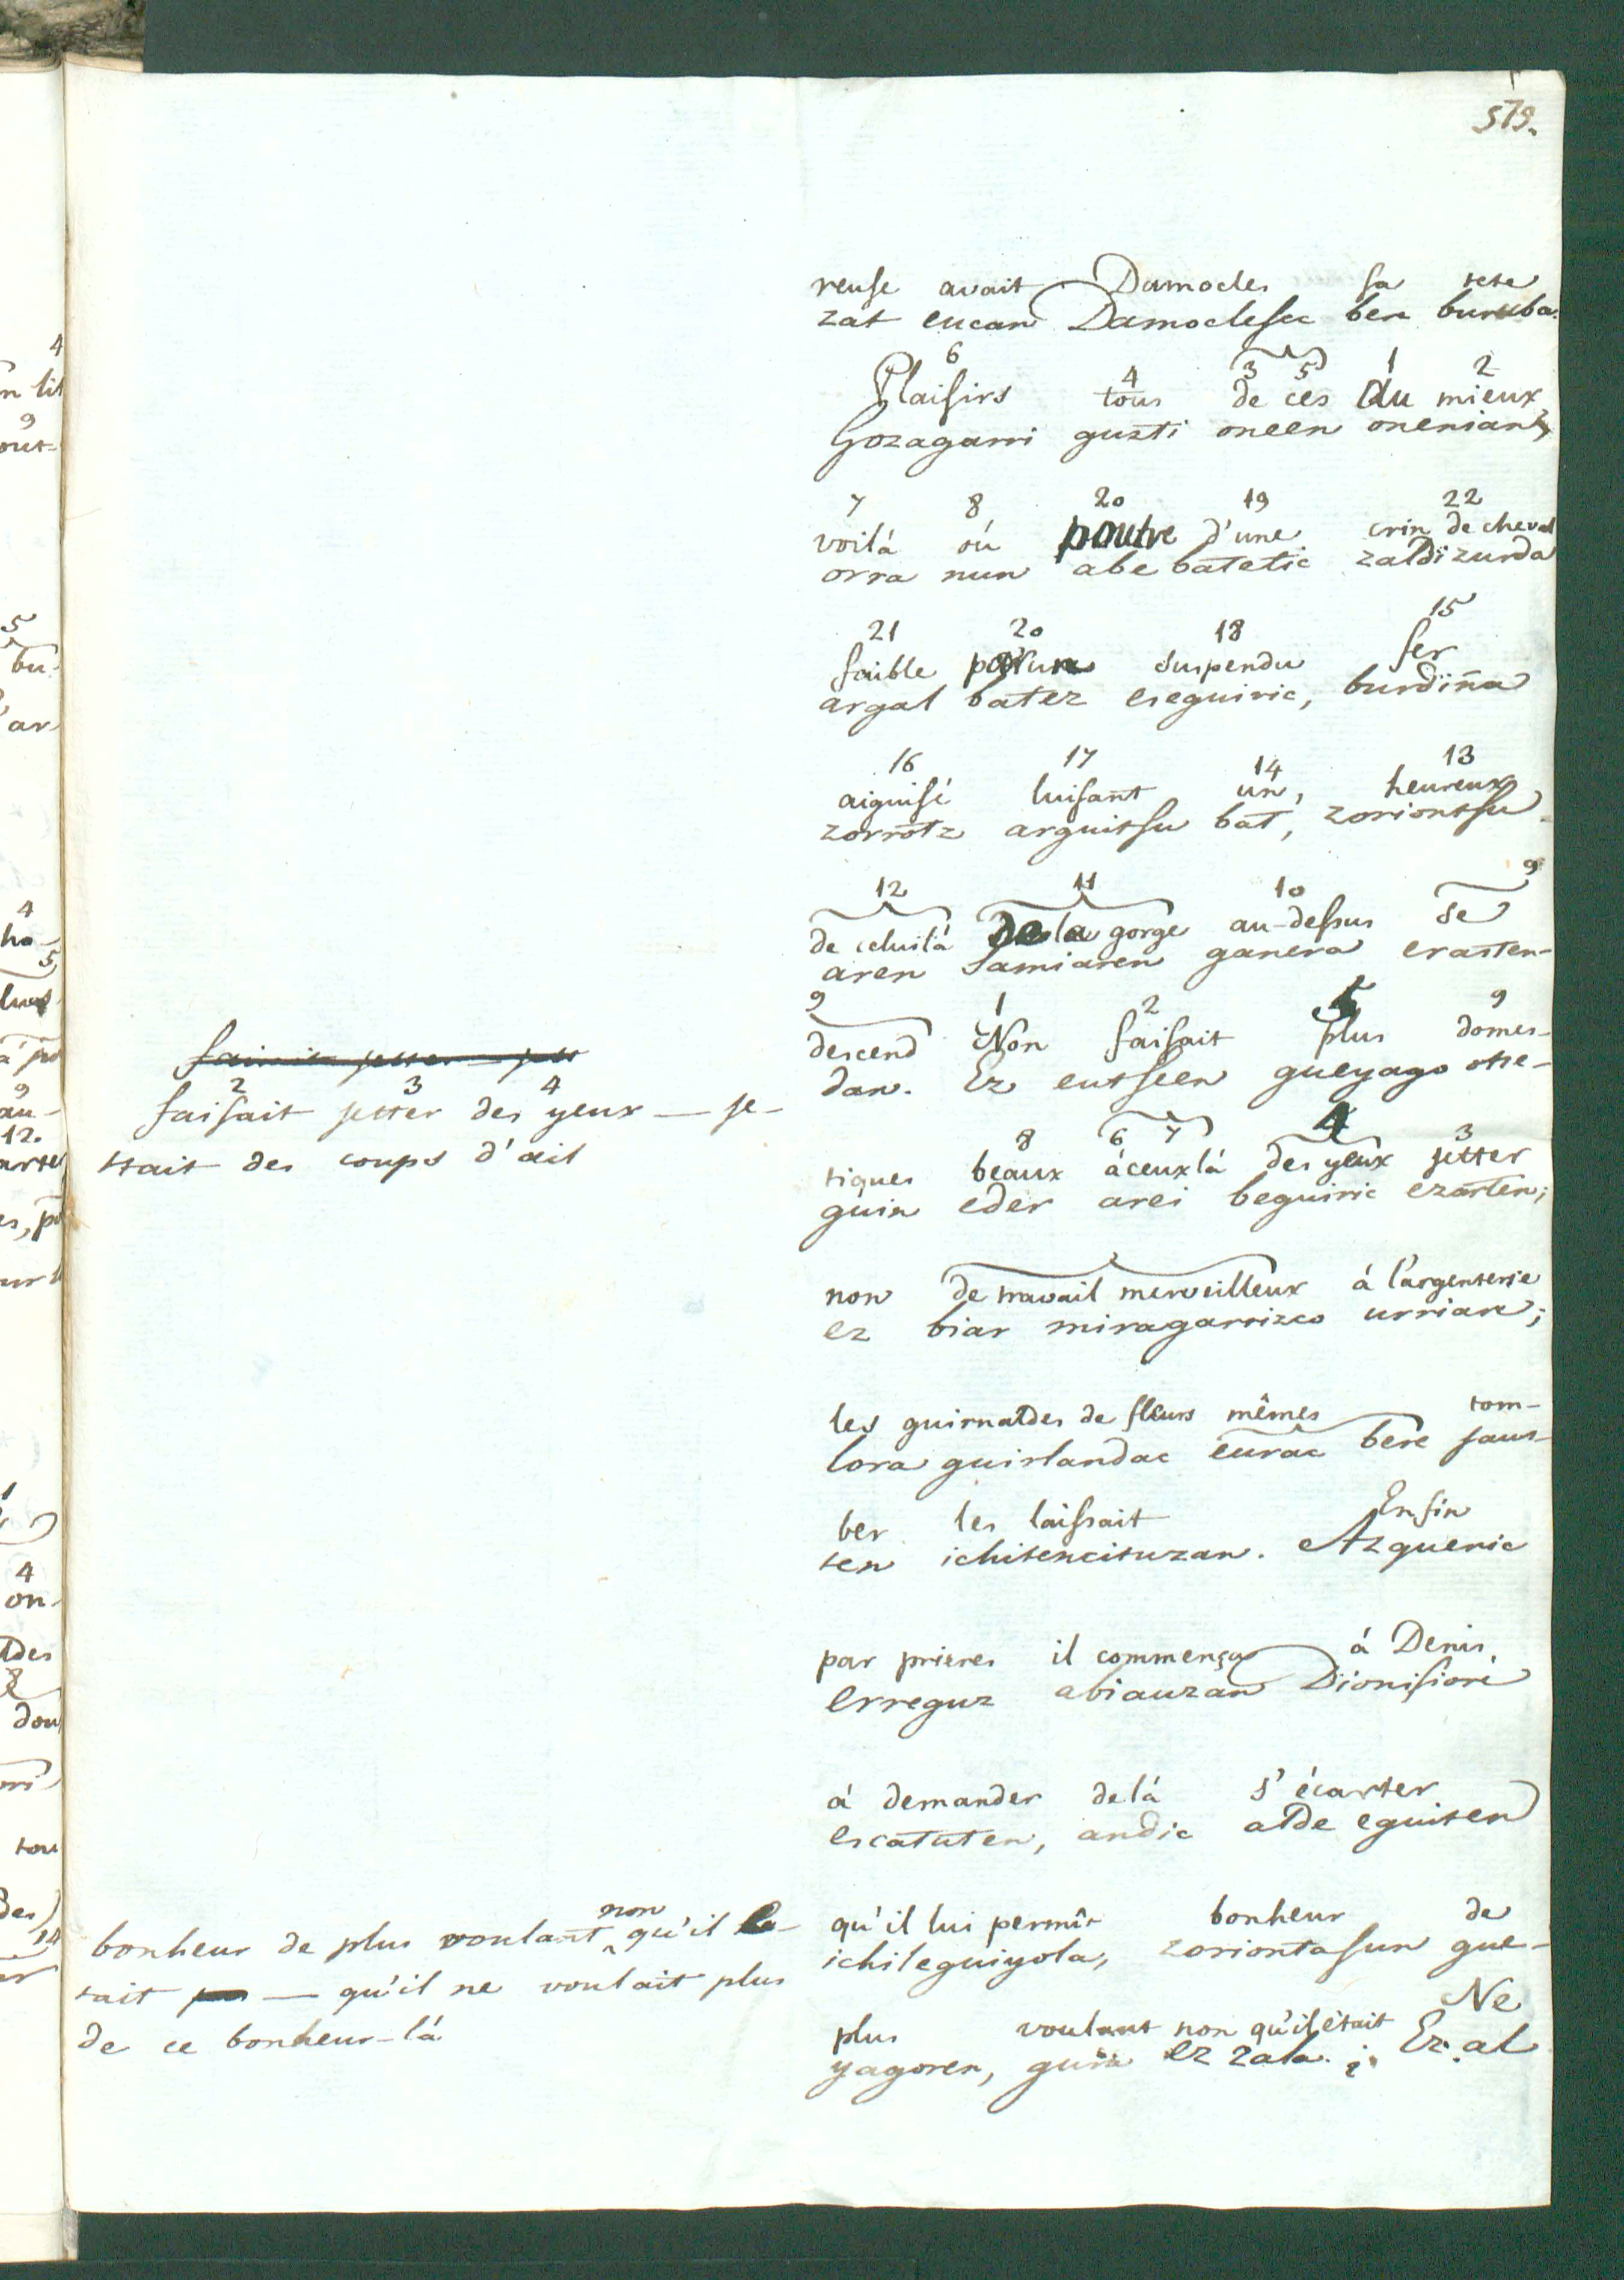 579.
reuse avait Damocles sa tete
zat eucan Damoclesec bere buruba.
6 4 3 5 1 2
Plaisirs tous de ces du mieux
Gozagarri guzti oneen onenian,
7 8 20 19 22
voilá oú poutre d'une crin de cheval
orra nun abe batetic zaldizurda
21 20 18 15
faible par un suspendu fer
argal batez eseguiric, burdiña
16 17 14 13
aiguisé luisant un, heureux
zorrotz arguitsu bat, zoriontsu
12 11 10 9
de celuilá de la gorge au-dessus se
aren samiaren ganera erasten-
9 1 2 5 9
descend Non faisait plus domes-
dan. Ez eutseen gueyago otse-
8 6 7 4 3
tiques beaux áceuxlá des yeux jetter
guin eder arei beguiric ezarten;
non de travail merveilleux á l'argenterie
ez biar miragarrizco urriari;
les guirnaldes de fleurs mêmes tom-
lora guirlandac eurac bere jaus-
ber les laissait Enfin
ten ichitencituzan. Azqueric
par prieres il commença á Denis
erreguz abiauzan Dionisiori
á demander delá s'écarter
escatuten, andic alde eguiten
qu'il lui permît bonheur de
ichileguiyola, zoriontasun gue-
plus voulant non qu'il était Ne
yagoren, gura ez zala. ¿ Ez al
faisait jetter
2 3 4
faisait jetter des yeux — je-
ttait des coups d'œil
bonheur de plus voulant non qu'il é-
tait — qu'il ne voulait plus
de ce bonheur-lá